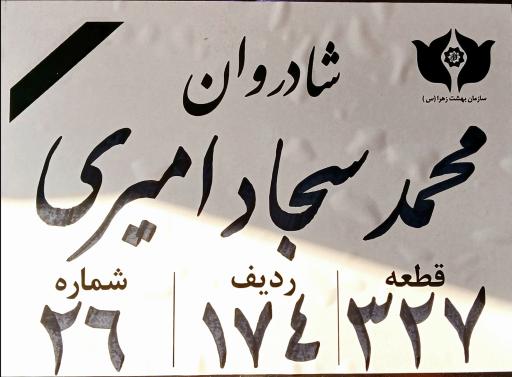 سازمان بهشت زهرا (س)
شادروان
محمد سجاد امیری
قطعه ردیف شماره
۳۲۷ ۱۷۴ ۲۶